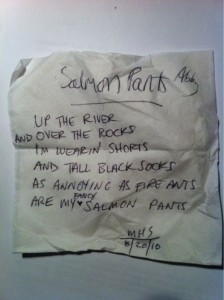 Salmon Pants
UP THE RIVER
AND OVER THE ROCKS
I'M WEARIN SHORTS
AND TALL BLACK SOCKS
AS ANNOYING AS FIRE ANTS
ARE MY FANCY SALMON PANTS
MHS
8/20/10